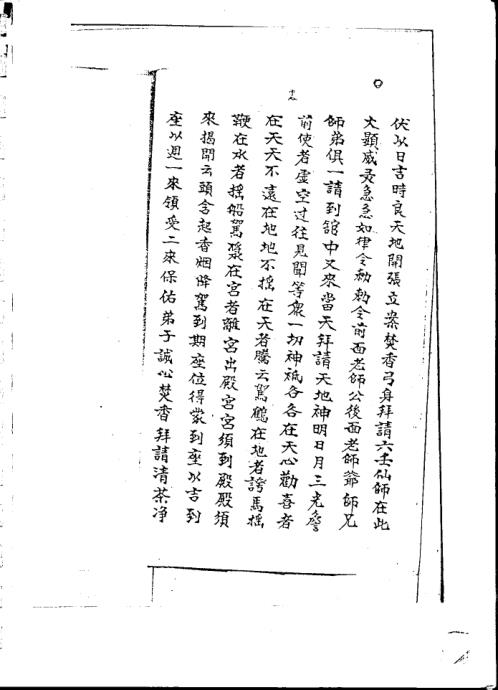 伏以日吉時良天地開張立案焚香弓身拜請六壬仙師在此
大顯威灵急急如律令勅勅令前面老師公後面老師爺師兄
師弟俱一請到舘中又來當天拜請天地神明日月三光詹
前使者虚空过往見聞等衆一切神祗各各在天心勸喜者
在天天不遠在地地不搖在天者騰云駕鶴在地者誇馬搖
鞭在水者摇船駕漿在宮者離宮出殿宮宮須到殿殿須
來揭開云頭含起香烟降駕到期座位得蒙到座以吉到
座以週一來領受二來保佑弟子誠心焚香拜請清茶净